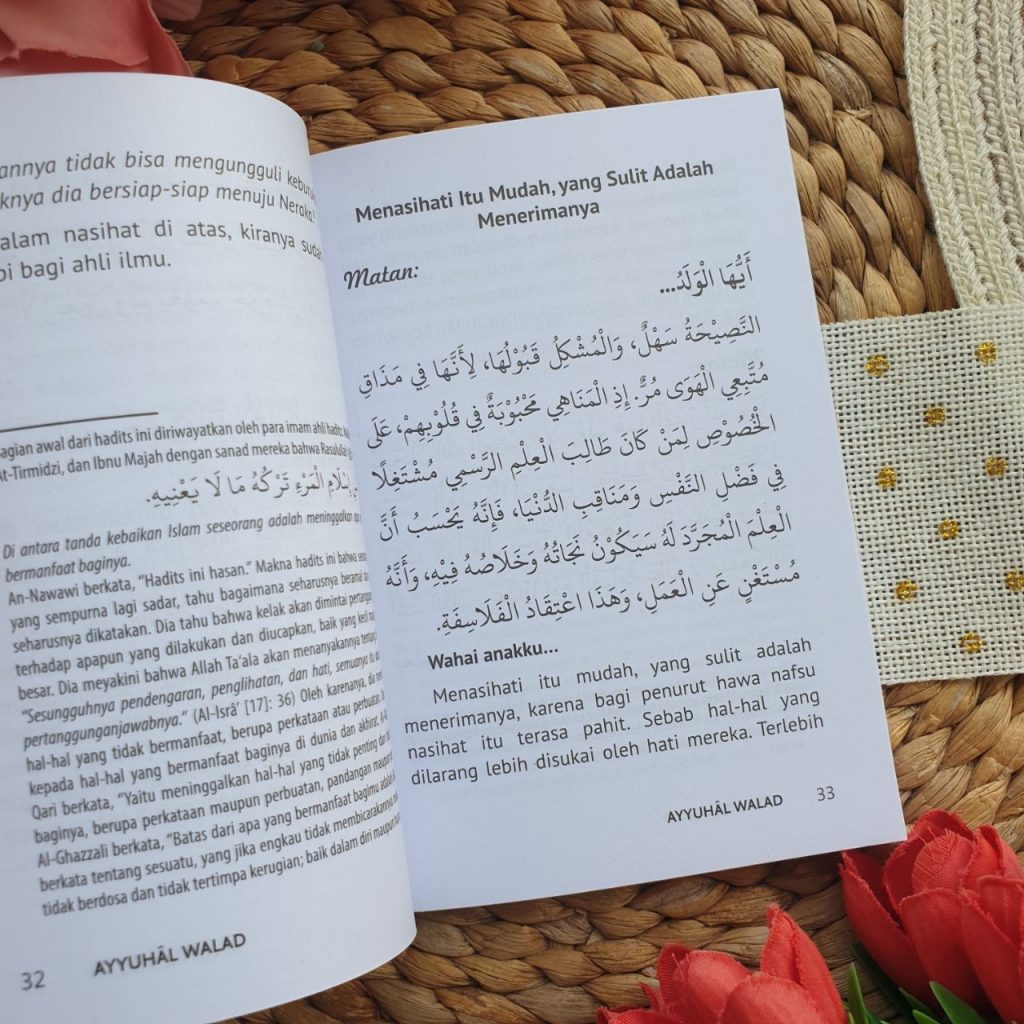 annya tidak bisa mengungguli
knya dia bersiap-siap menuju Neraka!
alam nasihat di atas, kiranya
bi bagi ahli ilmu.
agian awal dari hadits ini diriwayatkan oleh para imam ahli hadits
At-Tirmidzi, dan Ibnu Majah dengan sanad mereka bahwa
إِسْلَامِ الْمَرْءِ تَرْكُهُ مَا لَا يَعْنِيهِ.
Di antara tanda kebaikan Islam seseorang adalah meninggalkan
bermanfaat baginya.
An-Nawawi berkata, “Hadits ini hasan.” Makna hadits ini bahwa
yang sempurna lagi sadar, tahu bagaimana seharusnya beramal
seharusnya dikatakan. Dia tahu bahwa kelak akan dimintai
terhadap apapun yang dilakukan dan diucapkan, baik yang kecil
besar. Dia meyakini bahwa Allah Ta’ala akan menanyakannya tentang
“Sesungguhnya pendengaran, penglihatan, dan hati, semuanya itu
pertanggunganjawabnya.” (Al-Isrâ’ [17]: 36) Oleh karenanya, dia
hal-hal yang tidak bermanfaat, berupa perkataan atau perbuatan,
kepada hal-hal yang bermanfaat baginya di dunia dan akhirat.
Qari berkata, “Yaitu meninggalkan hal-hal yang tidak penting dan
baginya, berupa perkataan maupun perbuatan, pandangan maupun
Al-Ghazzali berkata, “Batas dari apa yang bermanfaat bagimu adalah
berkata tentang sesuatu, yang jika engkau tidak membicarakannya
tidak berdosa dan tidak tertimpa kerugian; baik dalam diri maupun
32 AYYUHÂL WALAD
Menasihati Itu Mudah, yang Sulit Adalah
Menerimanya
Matan:
أَيُّهَا الْوَلَدُ...
النَّصِيْحَةُ سَهْلٌ، وَالْمُشْكِلُ قَبُوْلُهَا، لِأَنَّهَا فِي مَذَاقِ
مُتَّبِعِي الْهَوَى مُرٌّ. إِذِ الْمَنَاهِي مَحْبُوْبَةٌ فِي قُلُوْبِهِمْ، عَلَى
الْخُصُوْصِ لِمَنْ كَانَ طَالِبَ الْعِلْمِ الرَّسْمِي مُشْتَغِلًا
فِي فَضْلِ النَّفْسِ وَمَنَاقِبِ الدُّنْيَا، فَإِنَّهُ يَحْسَبُ أَنَّ
الْعِلْمَ الْمُجَرَّدَ لَهُ سَيَكُوْنُ نَجَاتُهُ وَخَلَاصُهُ فِيْهِ، وَأَنَّهُ
مُسْتَغْنٍ عَنِ الْعَمَلِ، وَهَذَا اعْتِقَادُ الْفَلَاسِفَةِ.
Wahai anakku...
Menasihati itu mudah, yang sulit adalah
menerimanya, karena bagi penurut hawa nafsu
nasihat itu terasa pahit. Sebab hal-hal yang
dilarang lebih disukai oleh hati mereka. Terlebih
AYYUHÂL WALAD 33